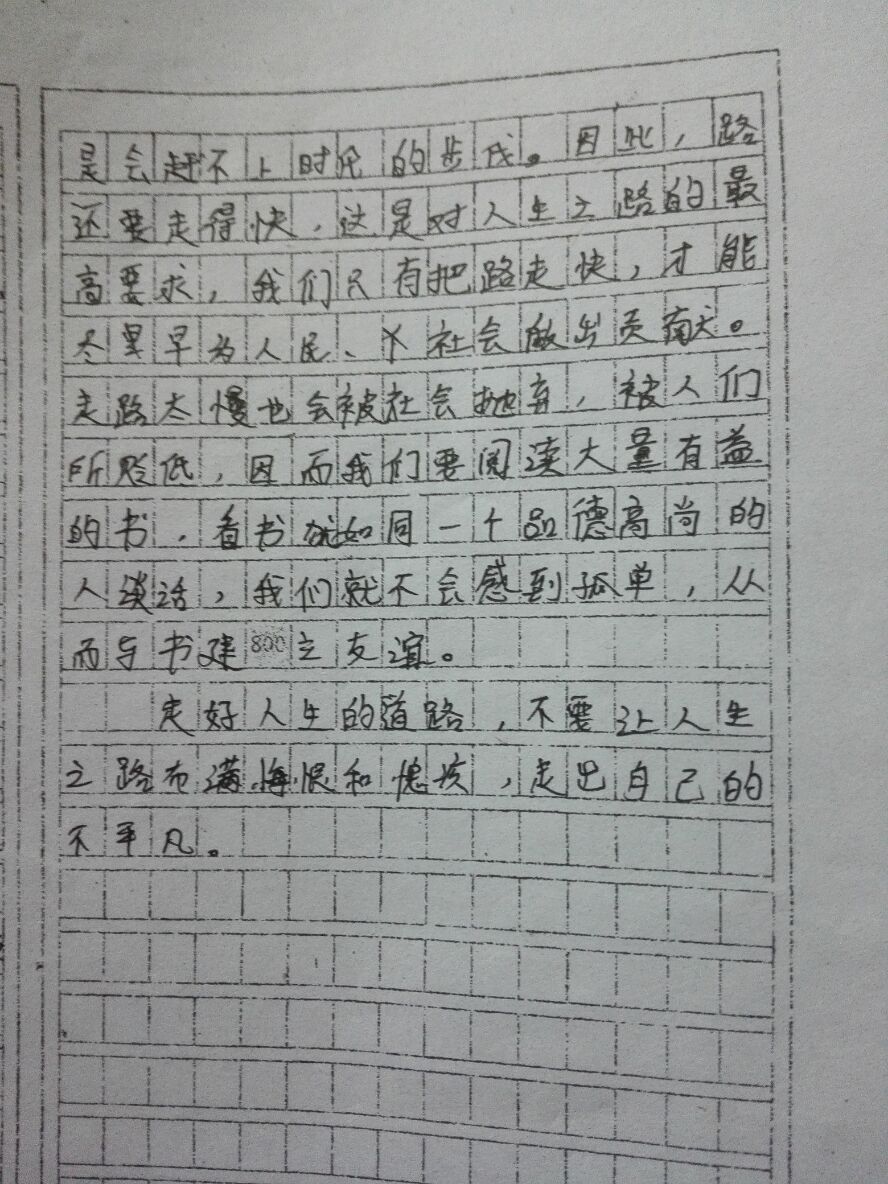 是会赶不上时代的步伐。因此，路
还要走得快，这是对人生之路的最
高要求，我们只有把路走快，才能
尽早为人民、社会做出贡献。
走路太慢也会被社会抛弃，被人们
所贬低，因而我们要阅读大量有益
的书，看书就如同一个品德高尚的
人谈话，我们就不会感到孤单，从
而与书建800立友谊。
走好人生的道路，不要让人生
之路布满悔恨和愧疚，走出自己的
不平凡。